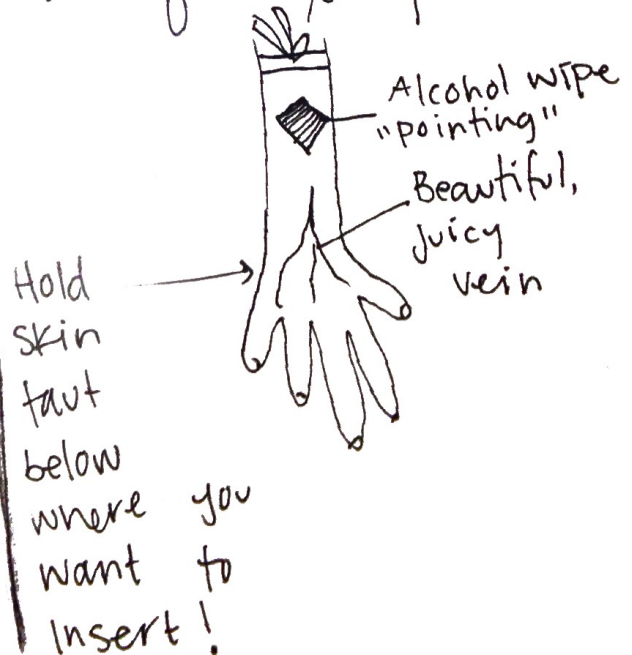 Alcohol wipe
"pointing"
Beautiful,
juicy
vein
Hold
skin
taut
below
where you
want to
Insert!